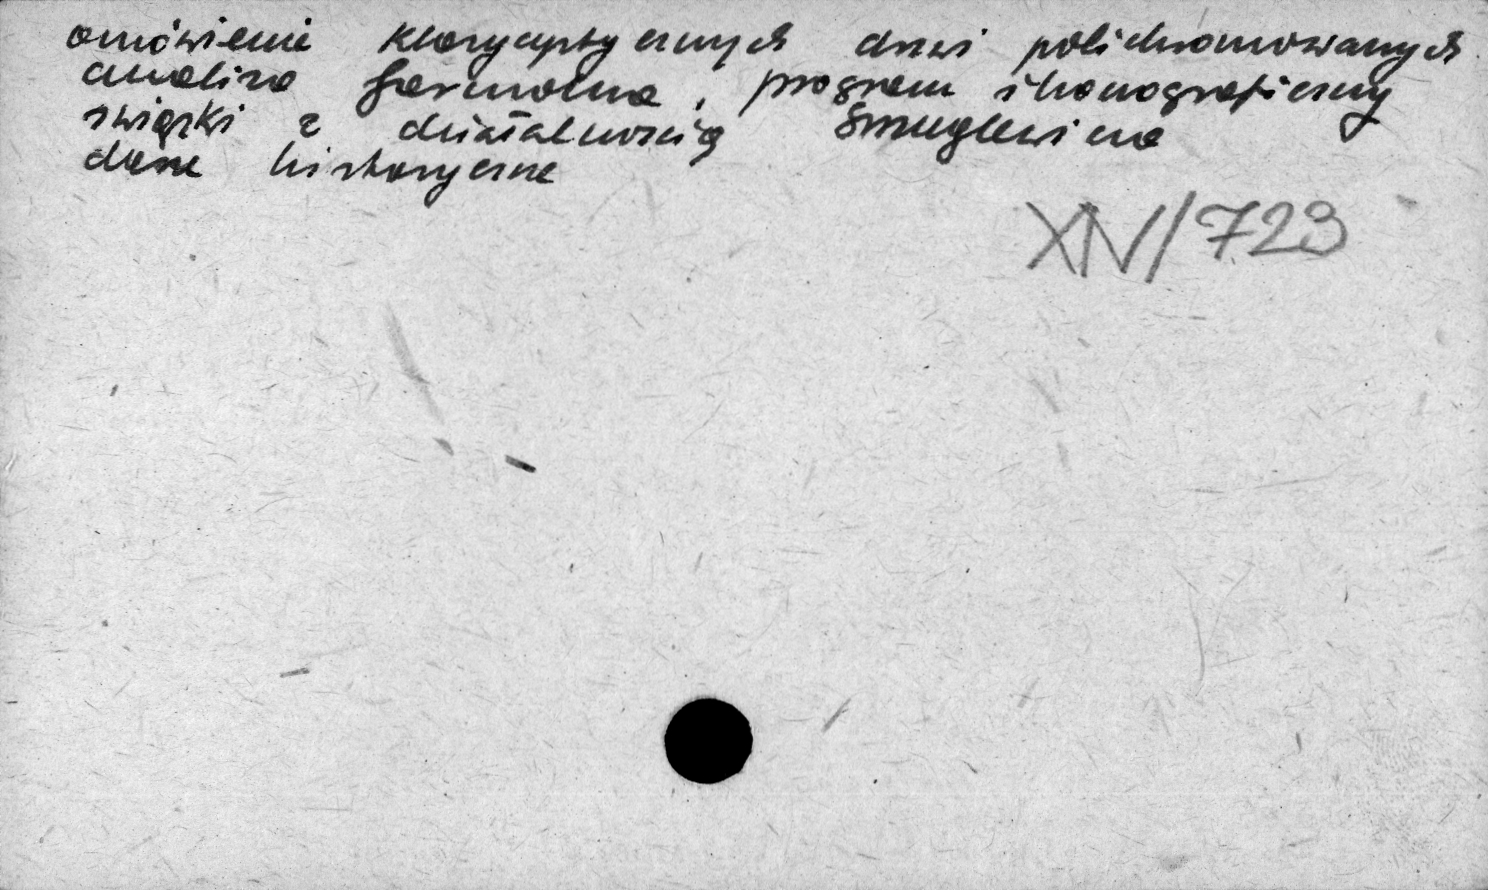 omówienie klasycystycznych drzwi polichromowanych
analiza formalna, program ikonograficzny
związki z działalnością Smuglewicza
dane historyczne
XIV/723